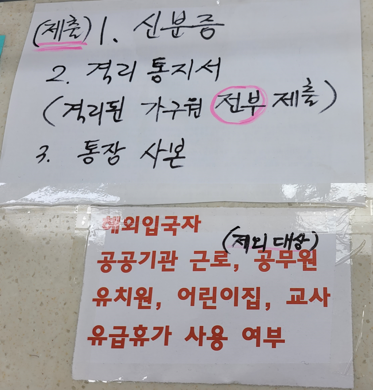 (제출) 1. 신분증
2. 격리 통지서
(격리된 가구원 전부 제출)
3. 통장 사본
해외입국자
(제외 대상)
공공기관 근로, 공무원
유치원, 어린이집, 교사
유급휴가 사용 여부